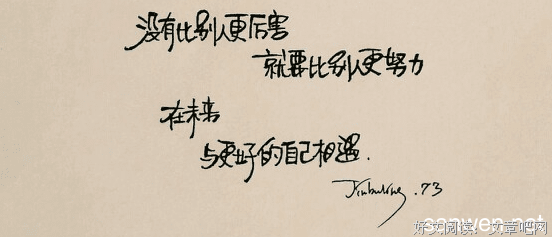 没有比别人更厉害
就要比别人更努力
在未来
与更好的自己相遇.
.73
sanwen.net
好文阅读：文章吧网